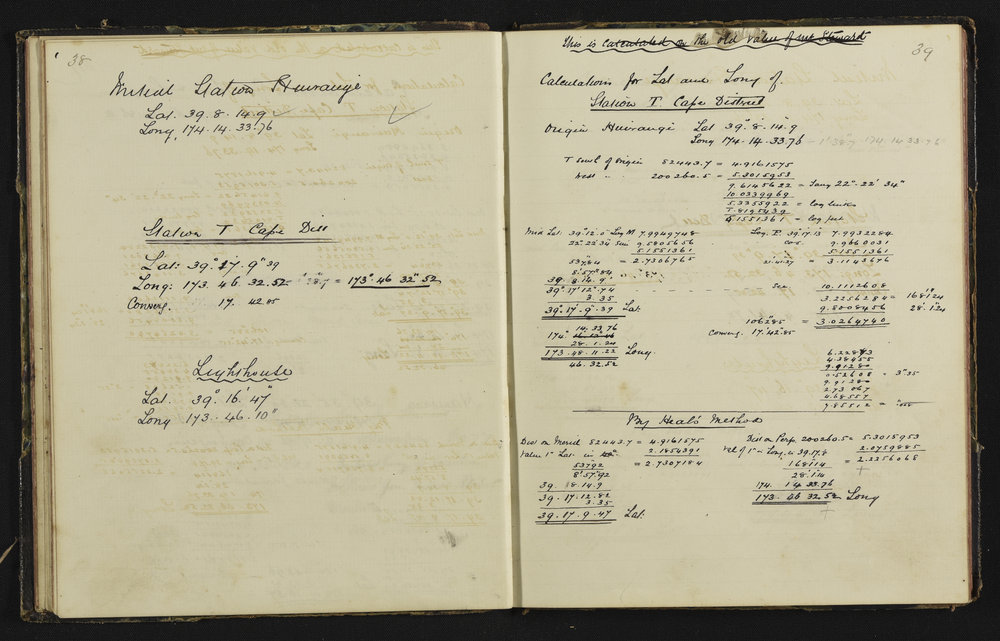 38
Initial Station Huirangi
Lat. 39. 8. 14. 9
Long. 174. 14. 33.76
Station T Cape Dist
Lat: 39° 17' 9" 39
Long: 173. 46 32.52 = 173° 46 32" 52
Converg. 17. 42.85
Lighthouse
Lat. 39° 16' 47"
Long 173. 46' 10"
39
This is calculated on the old value of Mr Stewart
Calculations for Lat and Long of
Station T. Cape District
Origin Huirangi Lat 39° 8' 14" 9
Long 174. 14. 33.76
T South of Origin 52443.7 = 4.9161575
West " " 200260.5 = 5.3015953
9.6145622 = Tang 22° 22' 34"
10.0339969
5.3355922 = log links
T.8195439
5.1551361 = log feet
Mid Lat. 39° 12' 0" Log M 7.9949748
22° 22' 34" Cos 9.5805656
5.1551361
537.84 = 2.7306765
8' 57" 84
39. 8. 14. 9
39° 17' 12" 74
3.35
39° 17' 9" 39 Lat
Log P. 39° 17' 13 7.9932284
cos. 9.9660031
5.1551361
= 3.1143676
Sec 10.1112608
3.2256284 = 1681.24
9.8008456 28' 1" 24
1062.85 = 3.0264740
Converg. 17' 42" 85
14. 33.76
174°
28. 1. 24
173. 48. 11. 22 Long.
46. 32.52
4.38455
9.91280
0.52608 = 3" 35
9.91280
2.73067
4.68557
7.85512 =
By Heal's Method
Dist on Merid 52443.7 = 4.9161575
Value 1" Lat in 2.1854391
537.92 = 2.7307184
8' 57" 92
39. 8. 14. 9
39. 17. 12. 82
3.35
39. 17. 9. 47 Lat.
Dist on Perp. 200260.5 = 5.3015953
Val of 1" in Long. in 39.17.8 2.0759885
1681.14 = 2.2256068
28' 1" 14
174. 14 33.76
173. 46 32.52 Long